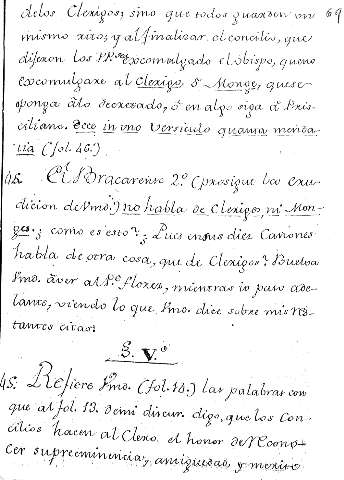 delos Clerigos; sino que todos guarden un 69
mismo rito; y al finalizar el concilio, que
dijeron los PP.es excomulgado el obispo, que no
excomulgare al Clerigo, ò Monge, que se
oponga à lo decretado, ò en algo siga à Pris-
ciliano. Ecce in uno versiculo quama menda-
cia (fol. 46.)
45. El Bracarense 2.º (prosigue la eru-
dicion de Vmd.) no habla de Clerigos, ni Mon-
ges.; como es esto? Pues en sus diez Canones
habla de otra cosa, que de Clerigos? Buelva
Vmd. à ver al P.e Florez, mientras io paso ade-
lante, viendo lo que Vmd. dice sobre mis res-
tantes citas.
§. V.º
45. Refiere Vmd. (fol. 14.) las palabras con
que al fol. 13. de mi discur. digo, que los Con-
cilios hacen al Clero el honor de recono-
cer su preeminencia, antiguedad, y merito